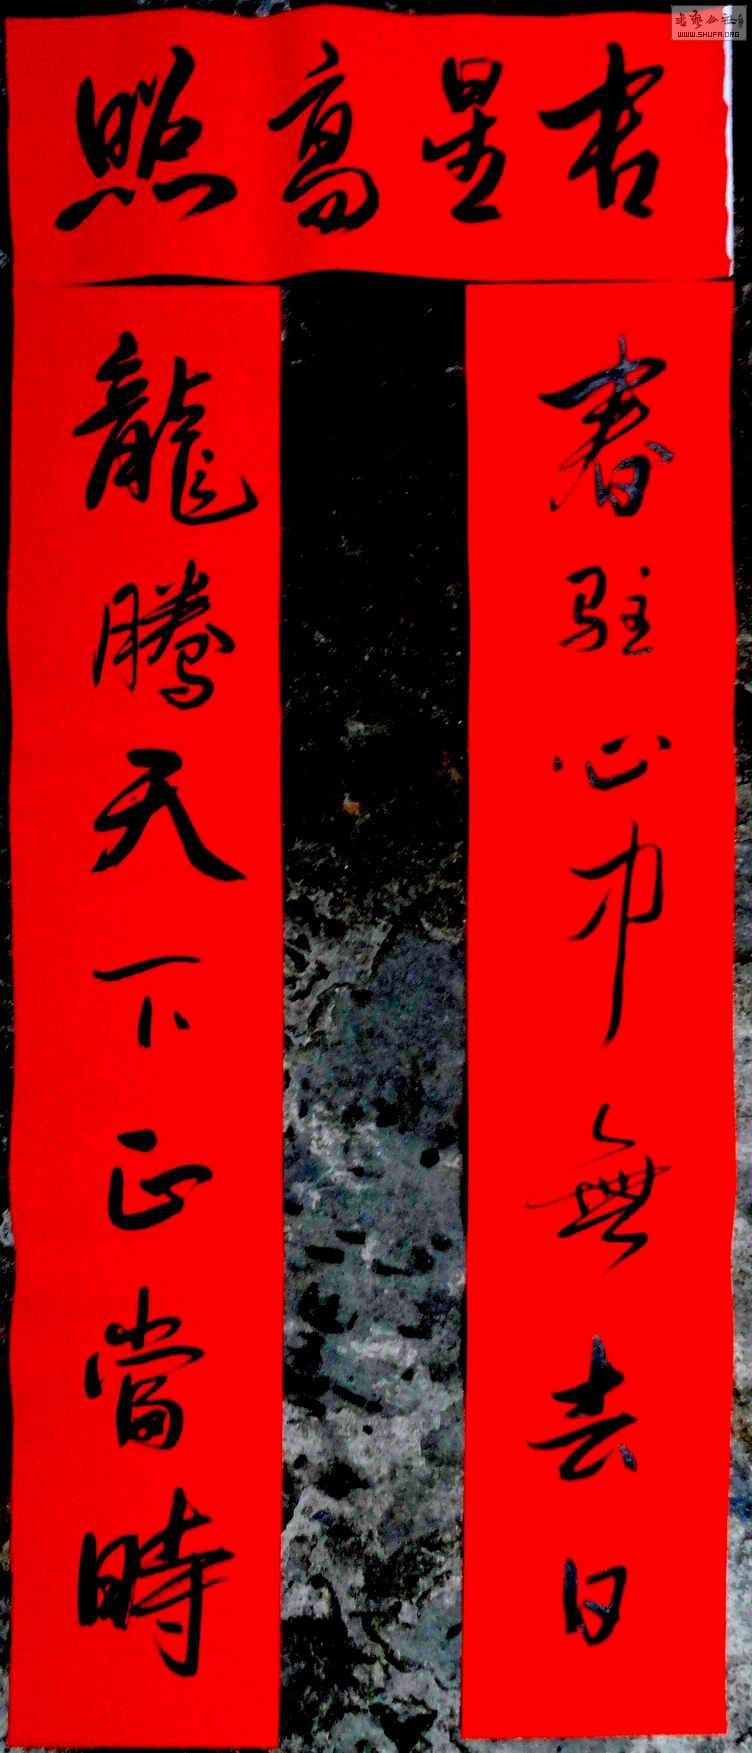 吉星高照
春驻心中無去日
龍騰天下正當時
书艺公社
WWW.SHUFA.ORG